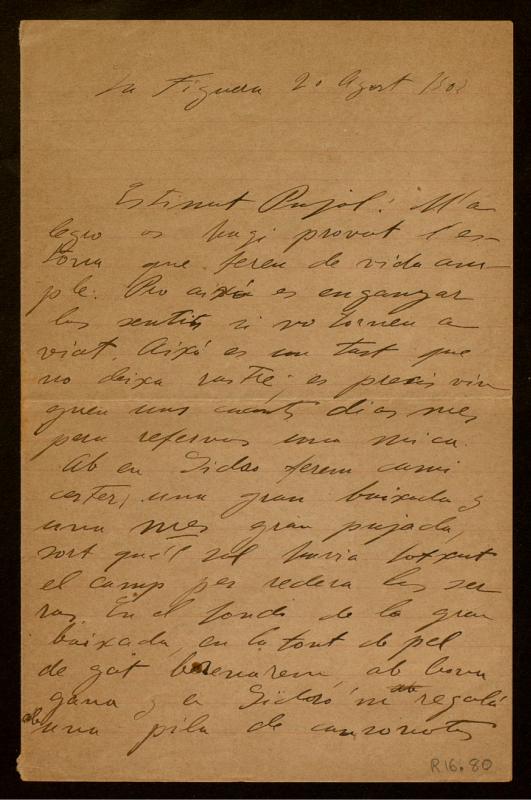 La Figuera 20 Agost 1903
Estimat Pujol: M'a
legro os hagi provat l'es
tona que fereu de vida am
ple. Pro aixó es enganyar
los sentits si no torneu a
viat. Aixó es un tast que
no deixa rastre; es precis vin
gueu uns cuants dias mes
pera refervos una mica.
Ab en Sidro ferem cami
corter, una gran baixada y
una mes gran pujada,
sort que'l sol havia
el camp per redera les ser
ras. En el fondo de la gran
baixada, en la font de pel
de gat berenarem, ab bona
gana y en Sidró m regalá
una pila de cansonetas
R16.80